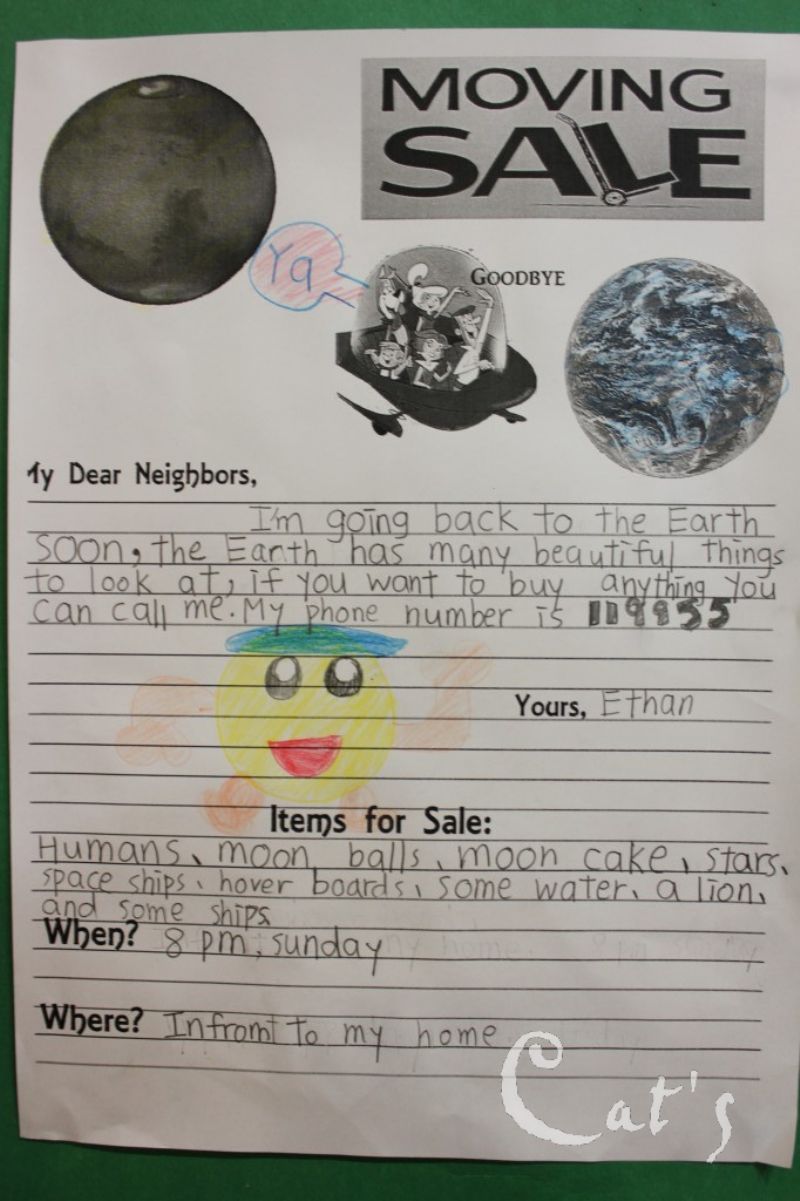 MOVING
SALE
Ya
GOODBYE
My Dear Neighbors,
I'm going back to the Earth
soon, the Earth has many beautiful things
to look at, if you want to buy anything you
can call me. My phone number is 119955
Yours, Ethan
Items for Sale:
Humans、moon balls、moon cake、stars、
space ships、hover boards、some water、a lion、
and some ships
When? 8 pm, sunday
Where? Infromt to my home
Cat's